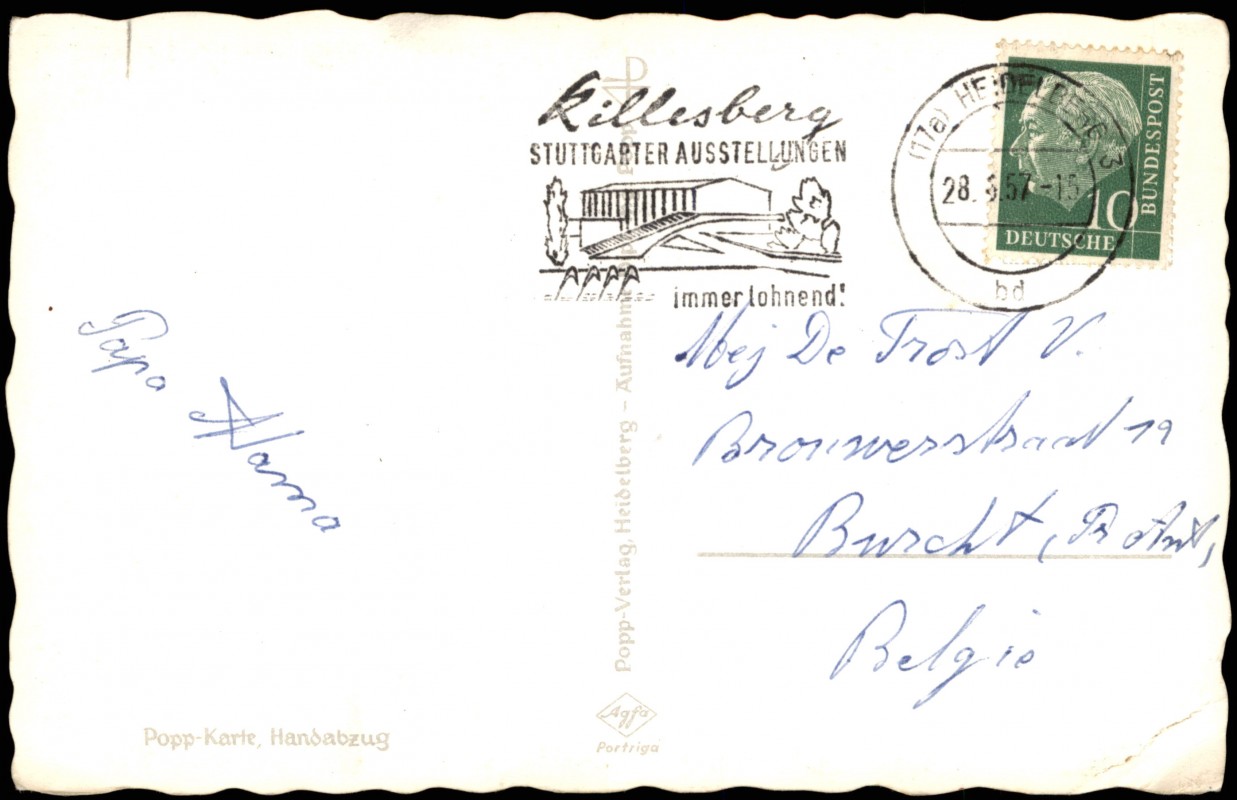 Killesberg
STUTTGARTER AUSSTELLUNGEN
immer lohnend!
(17a) HEIDELBERG 3
28. 57-15
bd
BUNDESPOST
10
DEUTSCHE
Papa
Mej De Trost V.
Brouwerstraat 19
Burcht, Pr Ant,
Belgie
Popp-Verlag, Heidelberg – Aufnahm
Popp-Karte, Handabzug
Agfa
Portriga